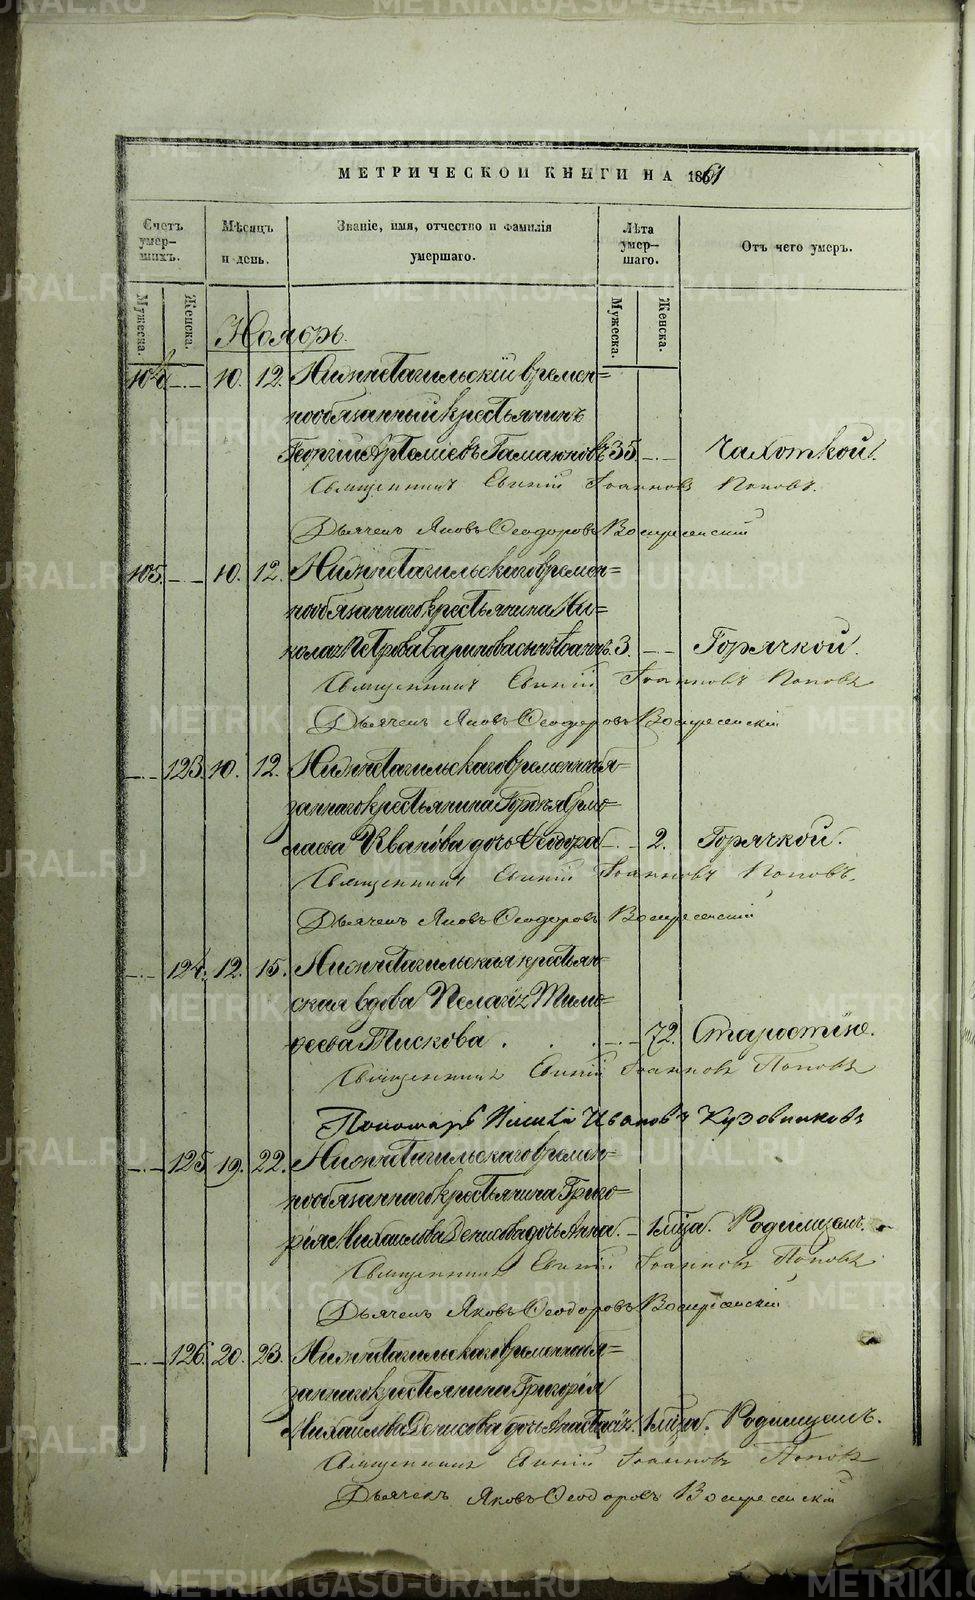 METRIKI.GASO-URAL.RU
МЕТРИЧЕСКОЙ КНИГИ НА 1861
Счетъ умер-
шихъ.
Мѣсяцъ
и день.
Званіе, имя, отчество и фамилія
умершаго.
Лѣта
умер-
шаго.
Отъ чего умеръ.
Мужеска.
Женска.
Мужеска.
Женска.
Ноябрь.
104 10. 12. Нижнетагильскій времен=
нообязанный крестьянинъ
Георгій Артеміевъ 35. Чахоткой.
Священникъ Іоанновъ Поповъ.
Дьячекъ Яковъ Ѳеодоровъ Воскресенскій
105. 10. 12. Нижнетагильскаго времен=
нообязаннаго крестьянина Ни=
колая Петрова сынъ 3. Горячкой.
Священникъ Іоанновъ Поповъ
Дьячекъ Яковъ Ѳеодоровъ Воскресенскій
123. 10. 12. Нижнетагильскаго временнообя=
заннаго крестьянина Ермо=
лаева дочь Ѳеодора 2. Горячкой.
Священникъ Іоанновъ Поповъ.
Дьячекъ Яковъ Ѳеодоровъ Воскресенскій
124. 12. 15. Нижнетагильская крестьян=
ская вдова Пелагія Тимо=
феева Пискова 72. Старостію.
Священникъ Іоанновъ Поповъ
Пономарь Ивановъ Кузовниковъ
125. 19. 22. Нижнетагильскаго времен=
нообязаннаго крестьянина Григо=
рія Михаилова Денисова дочь Анна. 1 мѣца. Родимцемъ.
Священникъ Іоанновъ Поповъ
Дьячекъ Яковъ Ѳеодоровъ Воскресенскій
126. 20. 23. Нижнетагильскаго временнообя=
заннаго крестьянина Григорія
Михаилова Денисова дочь Анастасія. 1 мѣца. Родимцемъ.
Священникъ Іоанновъ Поповъ
Дьячекъ Яковъ Ѳеодоровъ Воскресенскій
METRIKI.GASO-URAL.RU